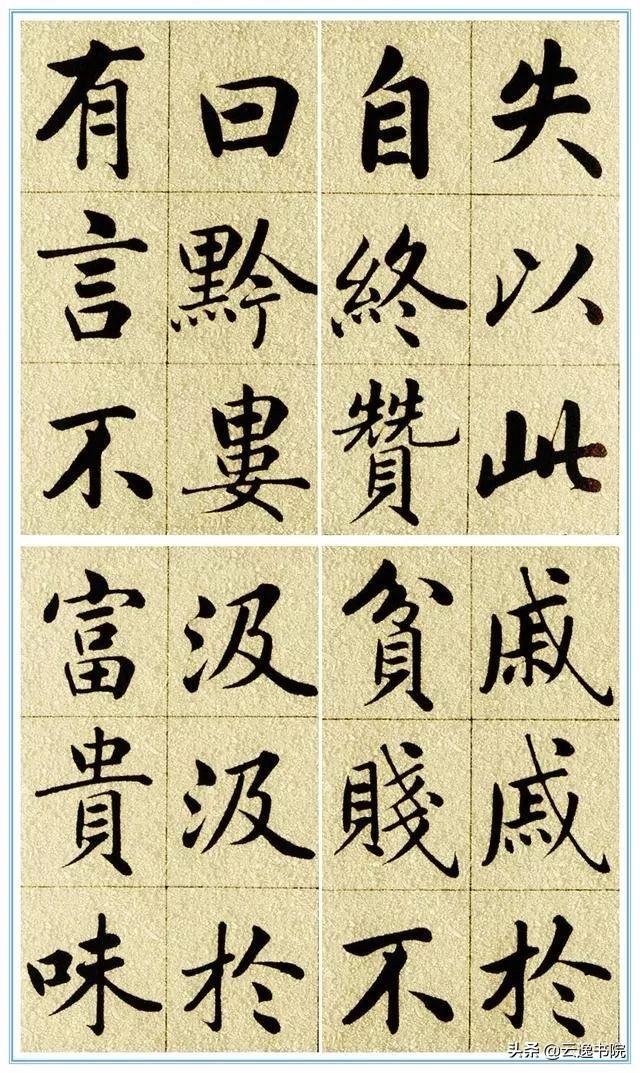 失以此
自終贊
曰黔婁
有言不
戚戚於
貧賤不
汲汲於
富貴味
头条 @云逸书院